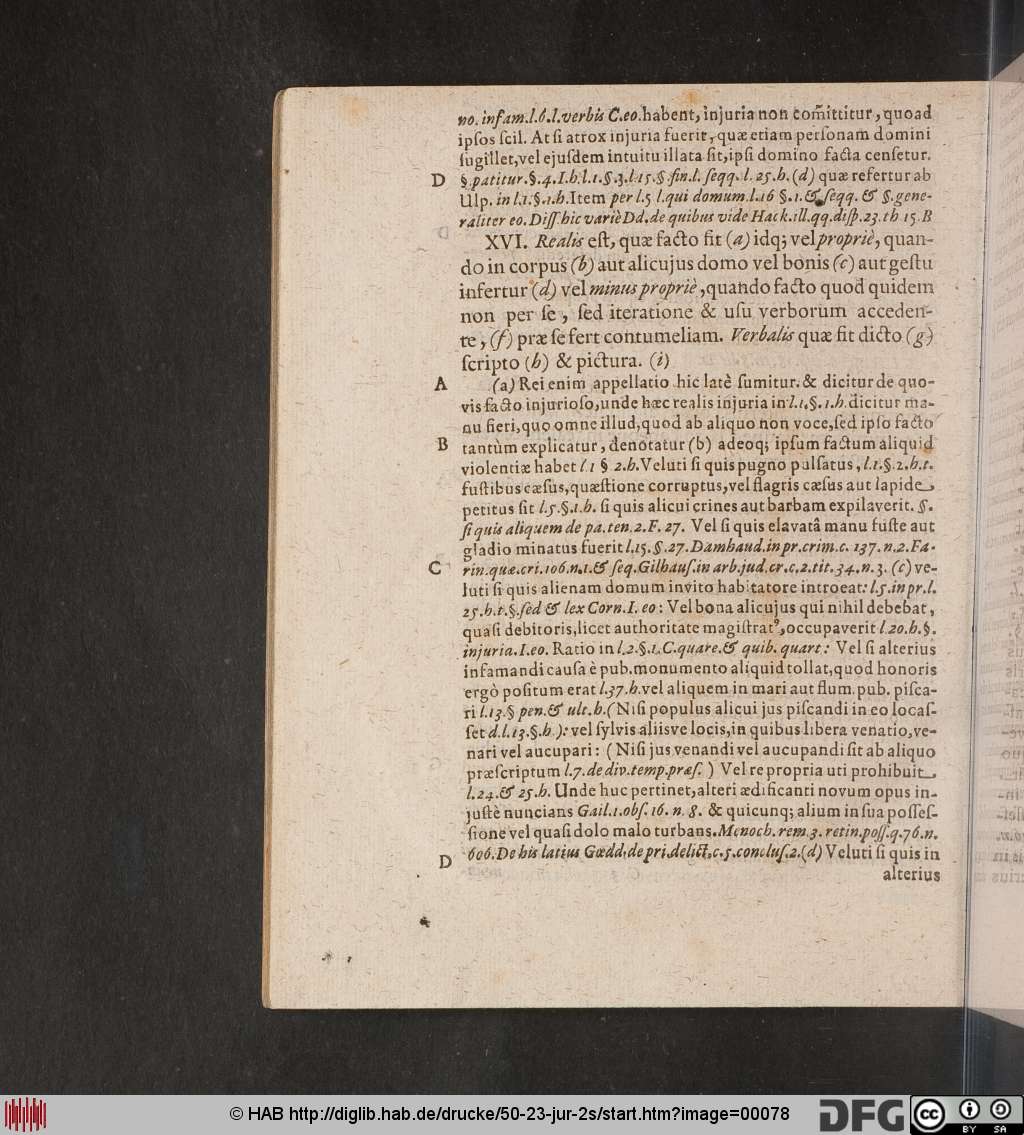 no. infam.l.6.l.verbis C.eo.habent, injuria non com̃ittitur, quoad
ipſos ſcil. At ſi atrox injuria fuerit, quæ etiam perſonam domini
ſugillet, vel ejuſdem intuitu illata ſit, ipſi domino facta cenſetur.
D §.patitur.§.4.I.h.l.1.§.3.l.15.§.fin.l. ſeqq. l. 25.h. (d) quæ refertur ab
Ulp. in l.1.§.1.h. Item per l.5 l.qui domum.l.16 §.1.& ſeqq. & §.gene-
raliter eo. Diſſ. hic variè Dd. de quibus vide Hack.ill.qq.diſp.23.th 15.B
XVI. Realis eſt, quæ facto fit (a) idq; vel propriè, quan-
do in corpus (b) aut alicujus domo vel bonis (c) aut geſtu
infertur (d) vel minus propriè, quando facto quod quidem
non per ſe, ſed iteratione & uſu verborum acceden-
te, (f) præ ſe fert contumeliam. Verbalis quæ fit dicto (g)
ſcripto (h) & pictura. (i)
A (a) Rei enim appellatio hic latè ſumitur. & dicitur de quo-
vis facto injurioſo, unde hæc realis injuria in l.1.§.1.h. dicitur ma-
nu fieri, quo omne illud, quod ab aliquo non voce, ſed ipſo facto
B tantùm explicatur, denotatur (b) adeoq; ipſum factum aliquid
violentiæ habet l.1 § 2.h. Veluti ſi quis pugno pulſatus, l.1.§.2.h.t.
fuſtibus cæſus, quæſtione corruptus, vel flagris cæſus aut lapide
petitus ſit l.5.§.1.h. ſi quis alicui crines aut barbam expilaverit. §.
ſi quis aliquem de pa.ten.2.F. 27. Vel ſi quis elavatâ manu fuſte aut
gladio minatus fuerit l.15.§.27.Damhaud.in pr.crim.c. 137.n.2.Fa-
C rin.quæ.cri.106.n.1.& ſeq.Gilhauſ.in arb.jud.cr.c.2.tit.34.n.3. (c) ve-
luti ſi quis alienam domum invito habitatore introeat: l.5.in pr.l.
25.h.t.§.ſed & lex Corn.I. eo: Vel bona alicujus qui nihil debebat,
quaſi debitoris, licet authoritate magiſtratꝰ, occupaverit l.20.h.§.
injuria.I.eo. Ratio in l.2.§.1.C.quare.& quib. quart: Vel ſi alterius
infamandi cauſa è pub. monumento aliquid tollat, quod honoris
ergò poſitum erat l.37.h. vel aliquem in mari aut flum. pub. piſca-
ri l.13.§ pen.& ult.h.(Niſi populus alicui jus piſcandi in eo locaſ-
ſet d.l.13.§.h.): vel ſylvis aliisve locis, in quibus libera venatio, ve-
nari vel aucupari: (Niſi jus venandi vel aucupandi ſit ab aliquo
præſcriptum l.7.de div.temp.præſ.) Vel re propria uti prohibuit
l.24.& 25.h. Unde huc pertinet, alteri ædificanti novum opus in-
juſtè nuncians Gail.1.obſ. 16. n. 8. & quicunq; alium in ſua poſſeſ-
ſione vel quaſi dolo malo turbans. Menoch. rem 3. retin.poſſ.q.76.n.
D 606. De his latius Gœdd. de pri.delict.c.5.concluſ.2.(d) Veluti ſi quis in
alterius
© HAB http://diglib.hab.de/drucke/50-23-jur-2s/start.htm?image=00078
DFG
cc
BY SA